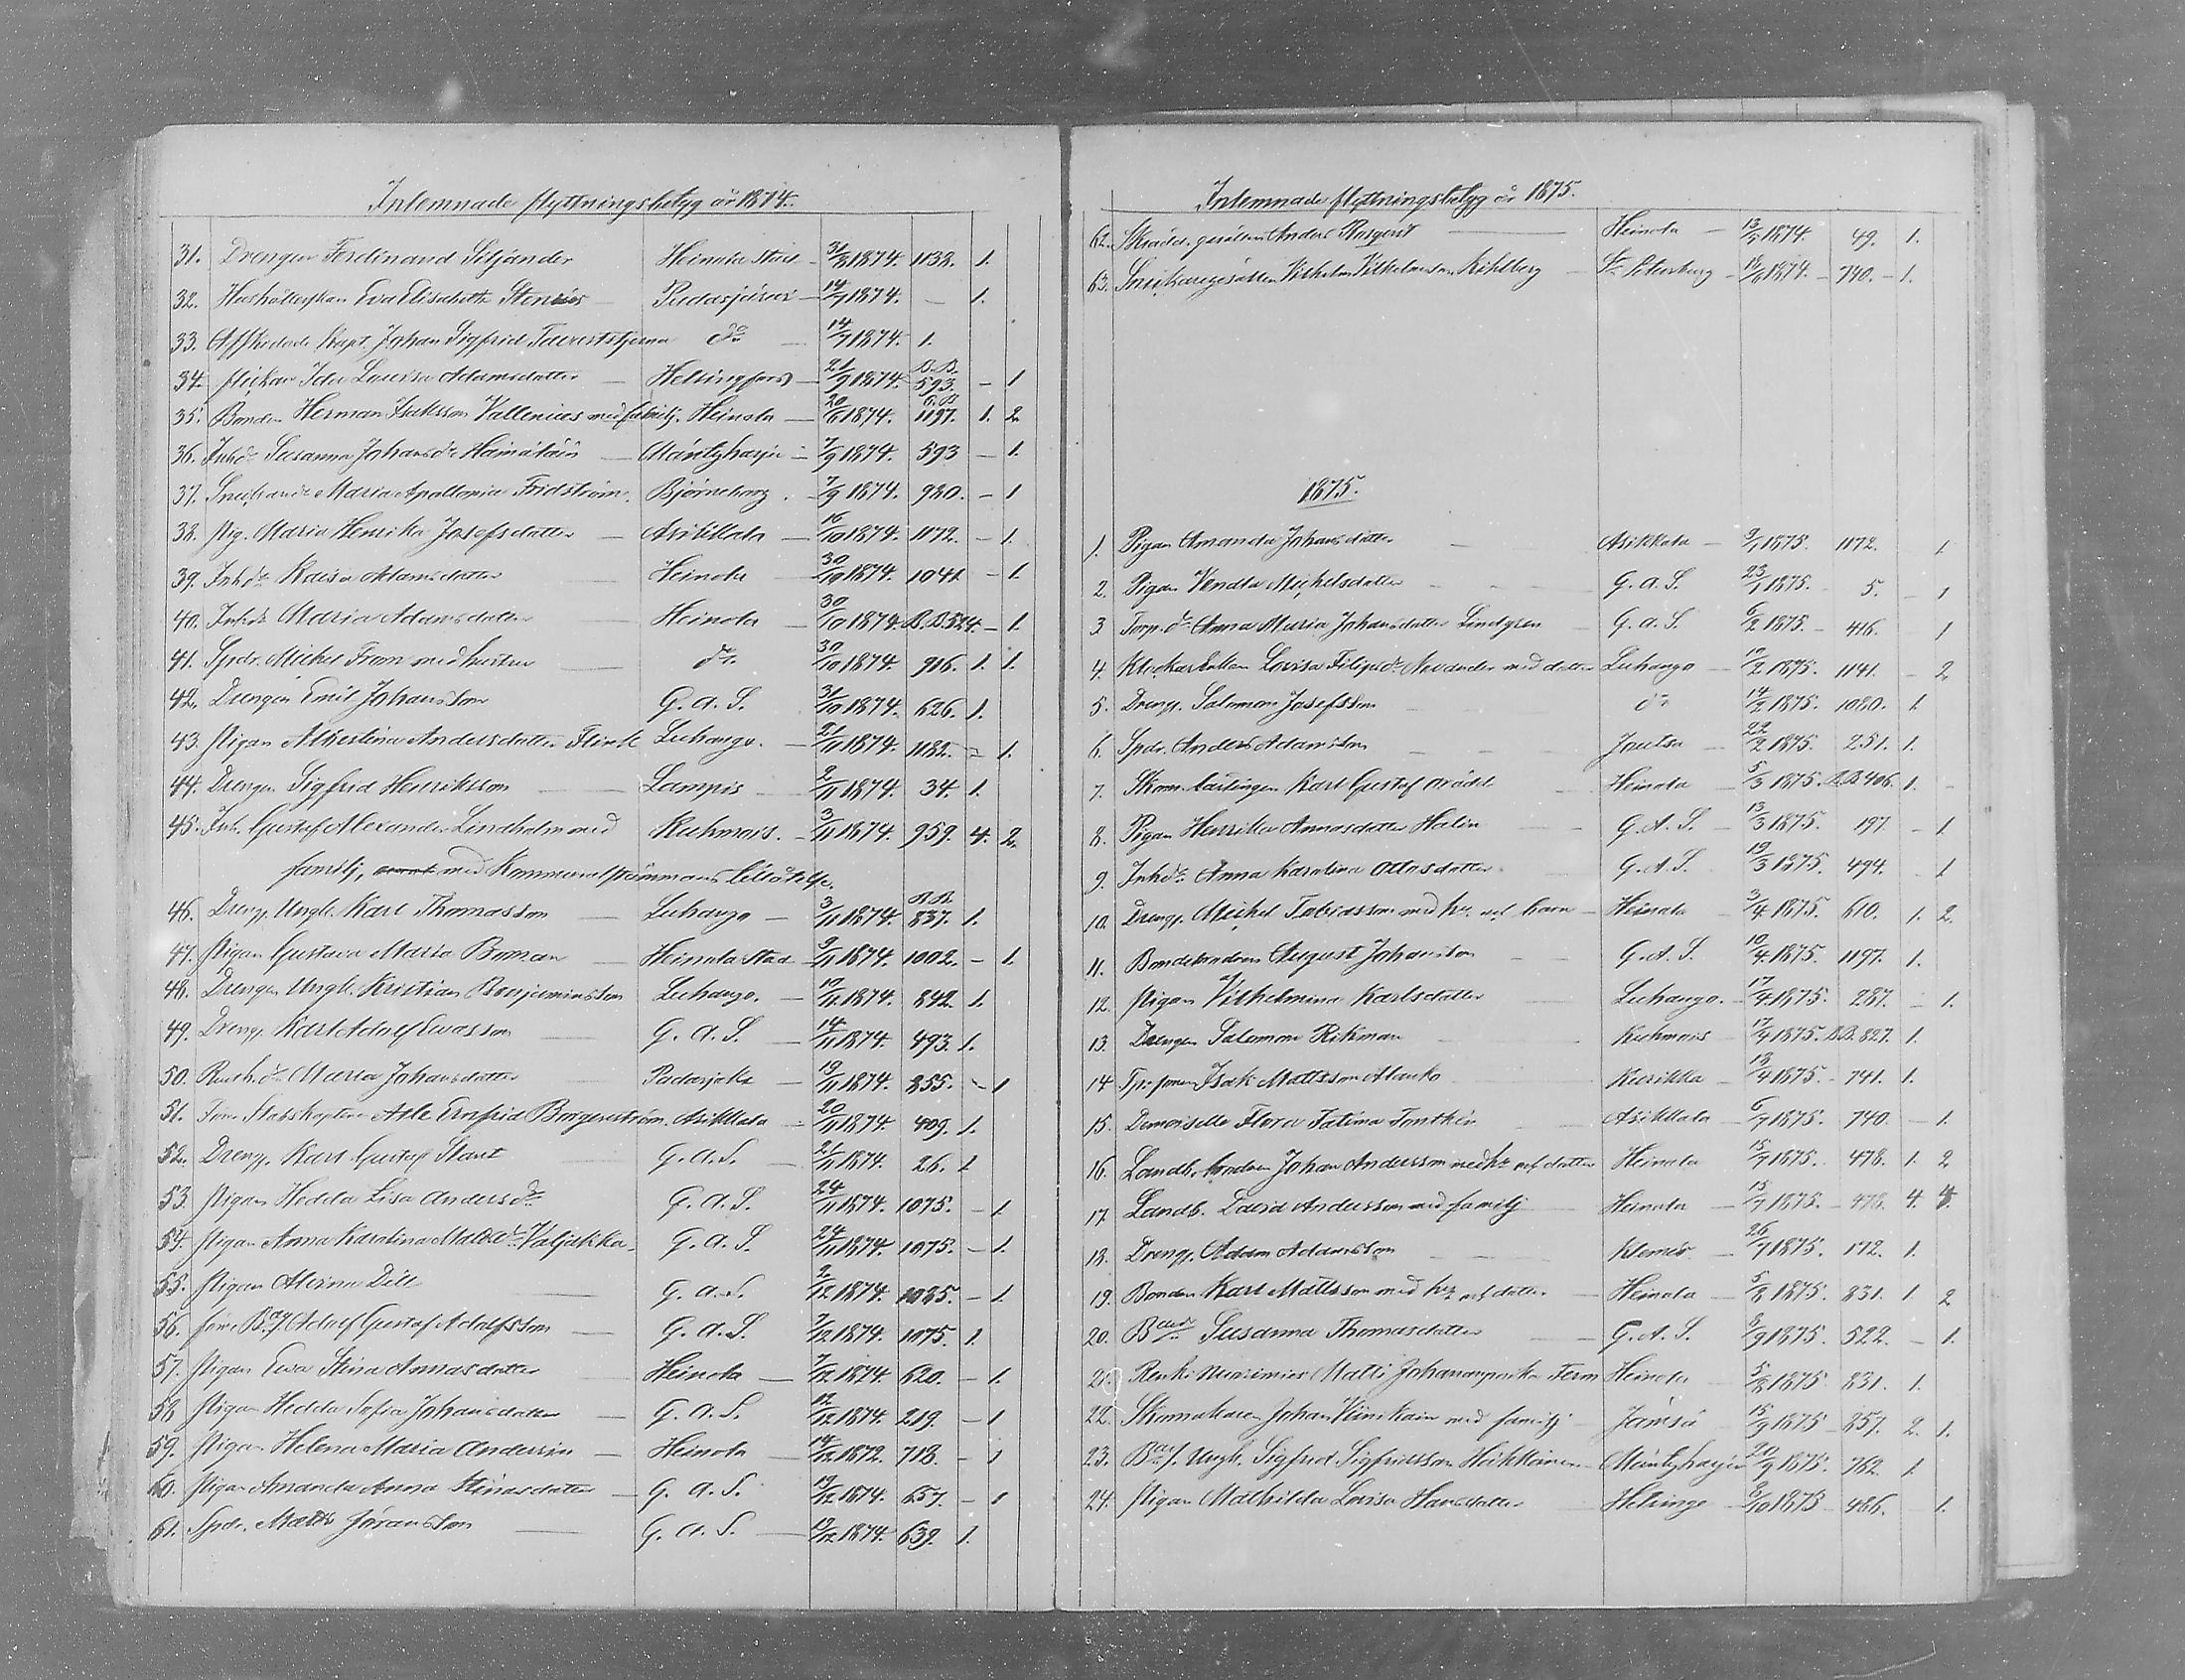 Inlemnade flyttningsbetyg år 1874.
31. Drengen Ferdinand Siljander Heinola Stad 31/8 1874. 1132. 1.
32. Hushållerskan Eva Elisabeth Stenius Pudasjärvi 14/7 1874. — 1.
33. Afskedade Kapt. Johan Sigfrid Tawaststjerna do 14/7 1874. 1.
34. Ida Lovisa Adamsdotter Helsingfors 21/9 1874. B.B. 593. — 1
35. Bonden Herman Isaksson Vallenius med familj. Heinola 20/6 1874. 1197. 1. 2
36. Inhdr Susanna Johansdr Hämäläin Mäntyharju 7/9 1874. 593 — 1.
37. Maria Apollonia Fridström. Björneborg 7/9 1874. 980. — 1
38. Pig. Maria Henrika Josefsdotter Asikkala 16/10 1874. 1172. — 1.
39. Inhdr Kaisa Adamsdotter Heinola 30/10 1874. 1041 — 1.
40. Inhdr Maria Adamsdotter Heinola 30/10 1874. B.B. 524. — 1.
41. Spdr. Mickel From med hustru do 30/10 1874 916. 1. 1.
42. Drengen Emil Johansson G. A. S. 31/10 1874. 626. 1.
43. Pigan Albertina Andersdotter Flink Luhango. 21/11 1874 1182. — 1.
44. Drengen Sigfrid Henriksson Lampis 2/11 1874. 34. 1.
45. Inh. Gustaf Alexander Lindholm med Kuhmois. 3/11 1874. 959. 4. 2.
familj, med Kommunalstämmans tillåtelse.
46. Dreng. Ungk. Karl Thomasson Luhango 3/11 1874. B.B. 837. 1.
47. Pigan Gustava Maria Boman Heinola Stad 9/11 1874. 1002. — 1.
48. Drengen Ungk. Kristian Benjaminsson Luhango. 10/11 1874. 842. 1.
49. Dreng. Karl Adolf Evasson G. A. S. 14/11 1874. 493. 1.
50. Maria Johansdotter Padasjoki 19/11 1874. 855. — 1
51. Stabskapten Atle Ernfrid Borgenström. Asikkala 20/11 1874. 409. 1.
52. Dreng. Karl Gustaf Stant G. A. S. 21/11 1874. 26. 1
53. Pigan Hedda Lisa Andersdr G. A. S. 24/11 1874. 1075. — 1.
54. Pigan Anna Karolina Mattsdr Valjakka. G. A. S. 24/11 1874. 1075. — 1.
55. Pigan Alvina Dill G. A. S. 2/12 1874. 1085. — 1.
56. Adolf Gustaf Adolfsson G. A. S. 7/12 1874. 1075. 1.
57. Pigan Eva Stina Annasdotter Heinola 7/12 1874. 620. — 1.
58 Pigan Hedda Sofia Johansdotter G. A. S. 12/12 1874. 219. — 1
59. Pigan Helena Maria Anderssin Heinola 14/12 1872. 718. — 1
60. Pigan Amanda Anna Stinasdotter G. A. S. 19/12 1874. 657. — 1
61. Spdr. Matts Göransson G. A. S. 19/12 1874. 639. 1.
Inlemnade flyttningsbetyg år 1875.
62. Anders Heinola 13/5 1874. 49. 1.
63. Snickaregesällen Vilhelm Vilhelmsson Kihlberg St Petersburg 18/6 1874. 740. 1.
1875.
1. Pigan Amanda Johansdotter Asikkala 9/1 1875. 1172. 1
2. Pigan Vendla Mickelsdotter G. A. S. 23/1 1875. 5. — 1
3 Torp.dr Anna Maria Johansdotter Lindgren G. A. S. 6/2 1875. 416. 1
4. Klockarenkan Lovisa Filipsdr med dotter Luhango 12/2 1875. 1141. — 2
5. Dreng. Salomon Josefsson do 14/2 1875. 1080. 1.
6. Spdr. Anders Adamsson Joutsa 22/2 1875. 251. 1.
7. Skom. lärlingen Karl Gustaf Heinola 5/3 1875. B.B. 406. 1.
8. Pigan Henrika Annasdotter Halin G. A. S. 13/3 1875. 197 — 1
9. Inhdr Anna Karolina Ottosdotter G. A. S. 19/3 1875. 494. 1
10. Dreng. Mickel Tobiasson med hu. och barn Heinola 3/4 1875. 610. 1. 2.
11. Bondebrodren August Johansson G. A. S. 10/4 1875. 1197. 1.
12. Pigan Vilhelmina Karlsdotter Luhango. 17/4 1875. 287. — 1.
13. Drengen Salomon Rikman Kuhmois 17/4 1875. B.B. 827. 1.
14 Isak Mattsson Alanko Kurikka 12/4 1875. 741. 1.
15. Demoiselle Flora Fatima Asikkala 6/7 1875. 740 — 1.
16. Landb. brodren Johan Andersson med hu och dotter Heinola 15/7 1875. 478. 1. 2
17. Landb. David Andersson med familj Heinola 15/7 1875. 478. 4
18. Dreng. Adam Adamsson Klemis 26/7 1875. 172. 1.
19. Bonden Karl Mattsson med hu och dotter Heinola 5/8 1875. 831. 1 2
20. Susanna Thomasdotter G. A. S. 2/9 1875. 522. — 1.
21. Renki Nuorimies Matti Johananpoika Ferm Heinola 5/8 1875. 831. 1.
22. Skomakaren Johan med familj Jämsä 15/9 1875 257. 2. 1.
23. Ungk. Sigfrid Sigfridsson Heikkinen Mäntyharju 20/9 1875. 762. 1.
24. Pigan Mathilda Lovisa Hansdotter Helsinge 2/10 1875 486. 1.